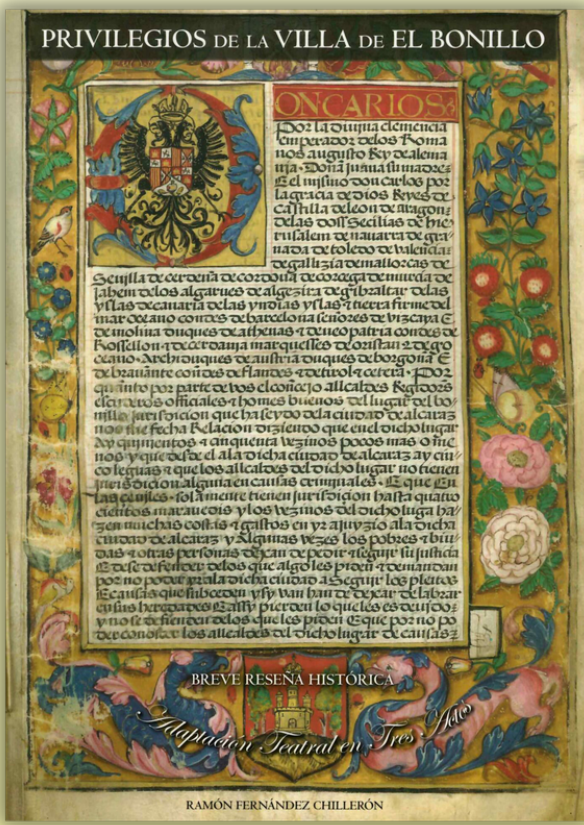 PRIVILEGIOS DE LA VILLA DE EL BONILLO
DON CARLOS
Por la diuina clemencia
emperador delos Roma
nos augusto Rey de alema
nja · Doña juana su madre
E el mismo don carlos por
la gracia de dios Reyes de
castilla de leon de aragon
delas doss secilias de hie
rusalem de nauarra de gra
nada de toledo de valencia
de gallizia de mallorcas de
Seuilla de cerdeña de cordoua de corcega de murcia de
jahem delos algarues de algezira de gibraltar delas
yslas de canaria delas yndias yslas & tierra firme del
mar oceano condes de barcelona señores de vizcaya E
de molina duques de athenas & de neopatria condes de
Rossellon & de cerdanja marquesses de oristan & de go
ceano · Archiduques de austria duques de borgoña E
de brauante condes de flandes & de tirol & cetera · Por
quanto por parte de vos el conçejo allcaldes Regidores
escuderos officiales & homes buenos del lugar del bo
nillo jurisdicion que ha seydo dela ciudad de alcaraz
nos fue fecha Relacion diziendo que en el dicho lugar
ay quinientos & cinquenta vezinos pocos mas o me
nos y que desde el ala dicha ciudad de alcaraz ay cin
co leguas & que los allcaldes del dicho lugar no tienen
jurisdicion alguna en causas criminales · E que En
las ceuiles · solamente tienen jurisdicion hasta quatro
cientos marauedis y los vezinos del dicho lugar ha
zen muchas costas & gastos en yr a juyzio ala dicha
ciudad de alcaraz · y Algunas vezes los pobres & biu
das & otras personas dexan de pedir & seguir su justicia
E de se defender delos que algo les piden & demandan
por no poder yr ala dicha ciudad a Seguir los pleitos
E causas que subceden y sy van han de dexar de labrar
en sus heredades E assy pierden lo que les es deuido
y no se defienden delos que les piden E que por no po
der conoscer los allcaldes del dicho lugar de causas
BREVE RESEÑA HISTÓRICA
Adaptación Teatral en Tres Actos
RAMÓN FERNÁNDEZ CHILLERÓN